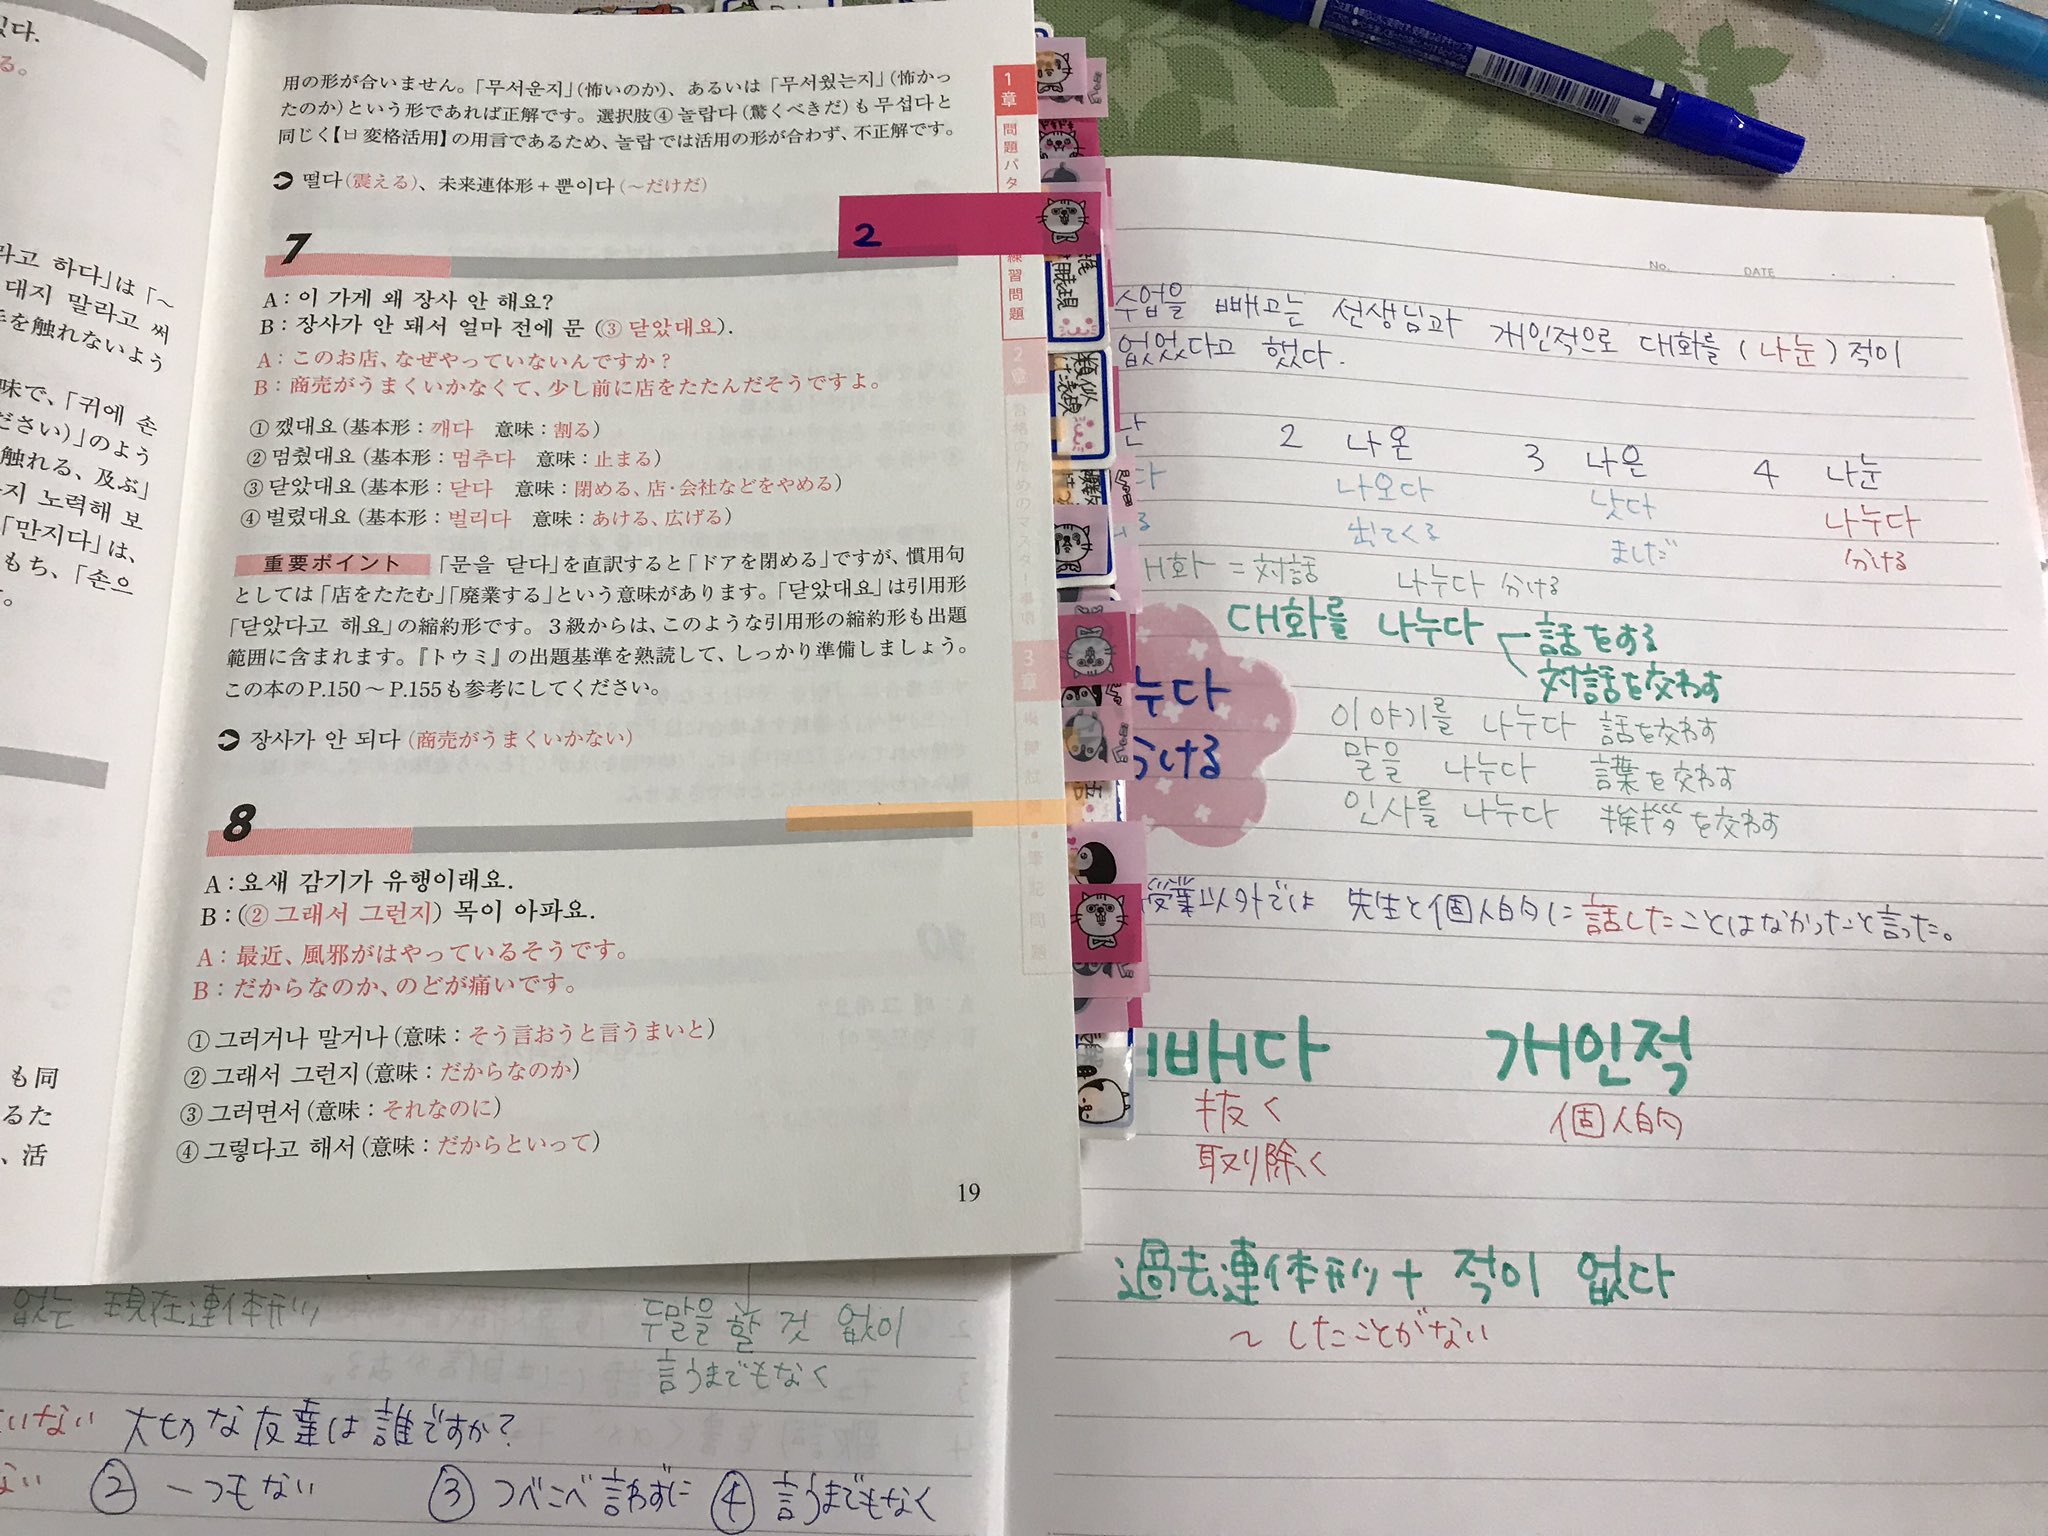 다.
る。
라고 하다」は「～
대지 말라고 써
を触れないよう
味で、「귀에 손
ださい)」のよう
触れる、及ぶ」
지 노력해 보
「만지다」は、
もち、「손으
。
も同
るた
、活
用の形が合いません。「무서운지」(怖いのか)、あるいは「무서웠는지」(怖かっ
たのか)という形であれば正解です。選択肢④놀랍다(驚くべきだ)も무섭다と
同じく【ㅂ変格活用】の用言であるため、놀랍では活用の形が合わず、不正解です。
떨다(震える)、未来連体形+뿐이다(～だけだ)
2
7
A:이 가게 왜 장사 안 해요?
B:장사가 안 돼서 얼마 전에 문 (③ 닫았대요).
A:このお店、なぜやっていないんですか?
B:商売がうまくいかなくて、少し前に店をたたんだそうですよ。
①깼대요(基本形:깨다 意味:割る)
②멈췄대요(基本形:멈추다 意味:止まる)
③닫았대요(基本形:닫다 意味:閉める、店・会社などをやめる)
④벌렸대요(基本形:벌리다 意味:あける、広げる)
重要ポイント 「문을 닫다」を直訳すると「ドアを閉める」ですが、慣用句
としては「店をたたむ」「廃業する」という意味があります。「닫았대요」は引用形
「닫았다고 해요」の縮約形です。3級からは、このような引用形の縮約形も出題
範囲に含まれます。『トウミ』の出題基準を熟読して、しっかり準備しましょう。
この本のP.150～P.155も参考にしてください。
장사가 안 되다(商売がうまくいかない)
8
A:요새 감기가 유행이래요.
B:(② 그래서 그런지) 목이 아파요.
A:最近、風邪がはやっているそうです。
B:だからなのか、のどが痛いです。
①그러거나 말거나(意味:そう言おうと言うまいと)
②그래서 그런지(意味:だからなのか)
③그러면서(意味:それなのに)
④그렇다고 해서(意味:だからといって)
19
1章
問題パタ
練習問題
2章
合格のためのマスター事項
3章
模擬試験・筆記問題
用表現
類似表現
No.
DATE
수업을 빼고는 선생님과 개인적으로 대화를 (나눈) 적이
없었다고 했다.
난 2 나온 3 나은 4 나눈
다 나오다 낫다 나누다
る 出てくる ましだ 分ける
대화 = 対話 나누다 分ける
대화를 나누다 話をする
対話を交わす
누다
分ける
이야기를 나누다 話を交わす
말을 나누다 言葉を交わす
인사를 나누다 挨拶を交わす
授業以外では 先生と個人的に話したことはなかったと言った。
빼다 개인적
抜く 個人的
取り除く
過去連体形+ 적이 없다
～したことがない
없는 現在連体形
두말을 할 것 없이
言うまでもなく
いない 大切な友達は誰ですか?
ない ② 一つもない ③ つべこべ言わずに ④ 言うまでもなく